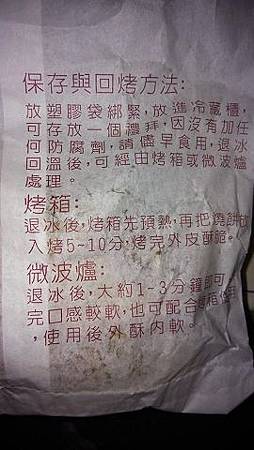 保存與回烤方法:
放塑膠袋綁緊,放進冷藏櫃,
可存放一個禮拜,因沒有加任
何防腐劑,請儘早食用,退冰
回溫後,可經由烤箱或微波爐
處理。
烤箱:
退冰後,烤箱先預熱,再把燒餅放
入烤5~10分,烤完外皮酥脆。
微波爐:
退冰後,大約1~3分鐘即可,
完口感較軟,也可配合烤箱使用
,使用後外酥內軟。